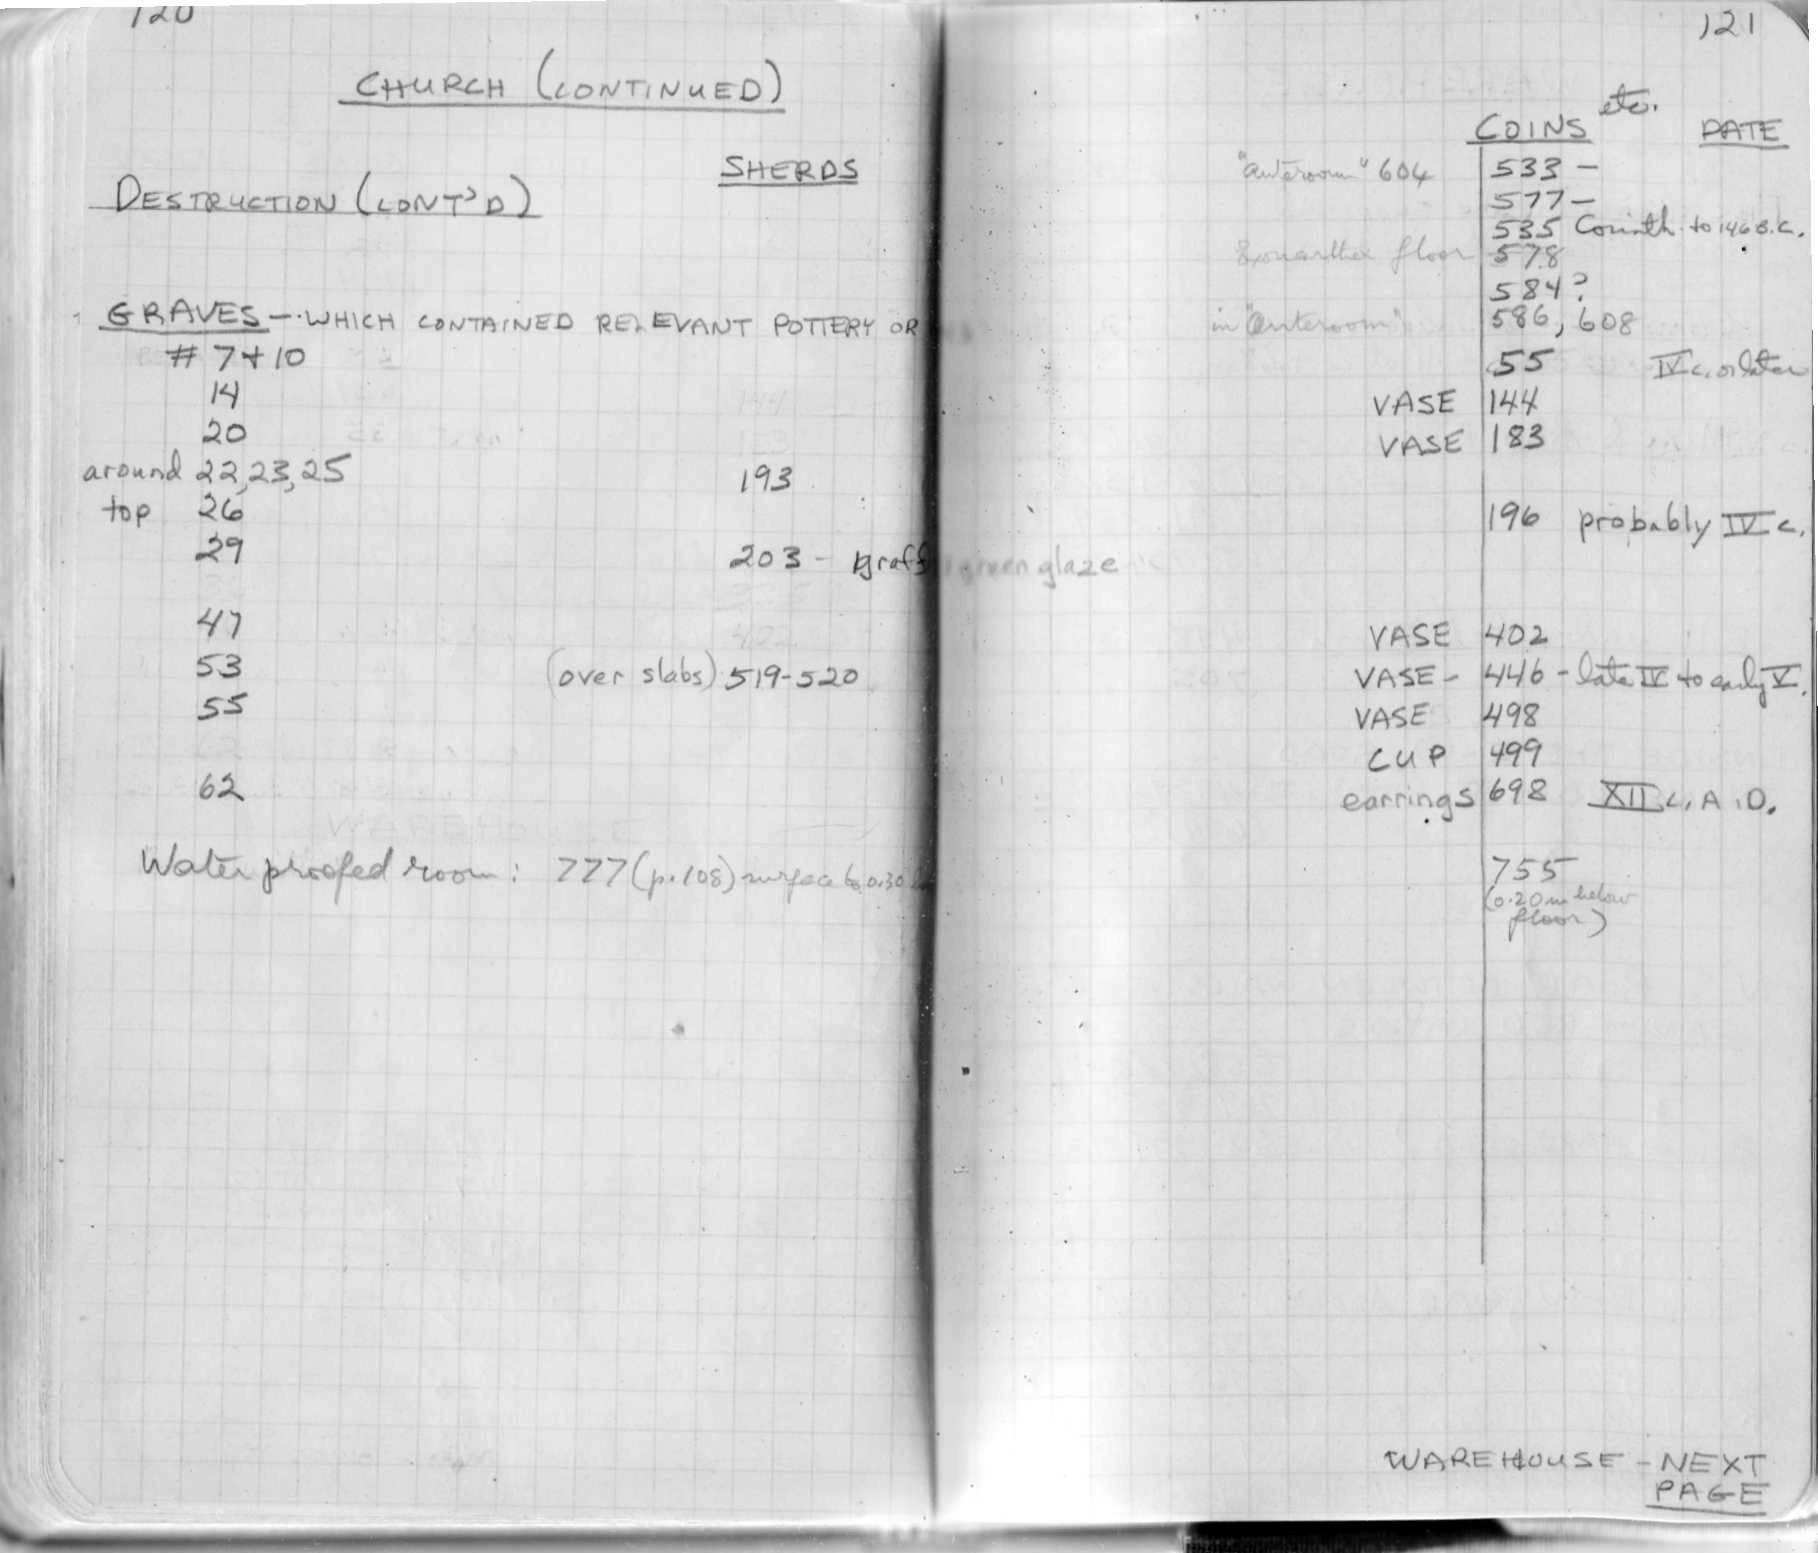 120
CHURCH (CONTINUED)
SHERDS
DESTRUCTION (CONT'D)
GRAVES — WHICH CONTAINED RELEVANT POTTERY OR
# 7 + 10
14
20
around 22, 23, 25 193
top 26
29 203 - green glaze
47
53 (over slabs) 519-520
55
62
Waterproofed room: 777 (p. 108) surface to 0.30
121
COINS etc. DATE
"anteroom" 604 533 —
577 —
535 Corinth to 146 B.C.
Exonarthex floor 578
584?
in "anteroom" 586, 608
55 IV c. or later
VASE 144
VASE 183
196 probably IV c.
VASE 402
VASE - 446 - late IV to early V.
VASE 498
CUP 499
earrings 698 XII c. A.D.
755
(0.20 m below
floor)
WAREHOUSE - NEXT
PAGE